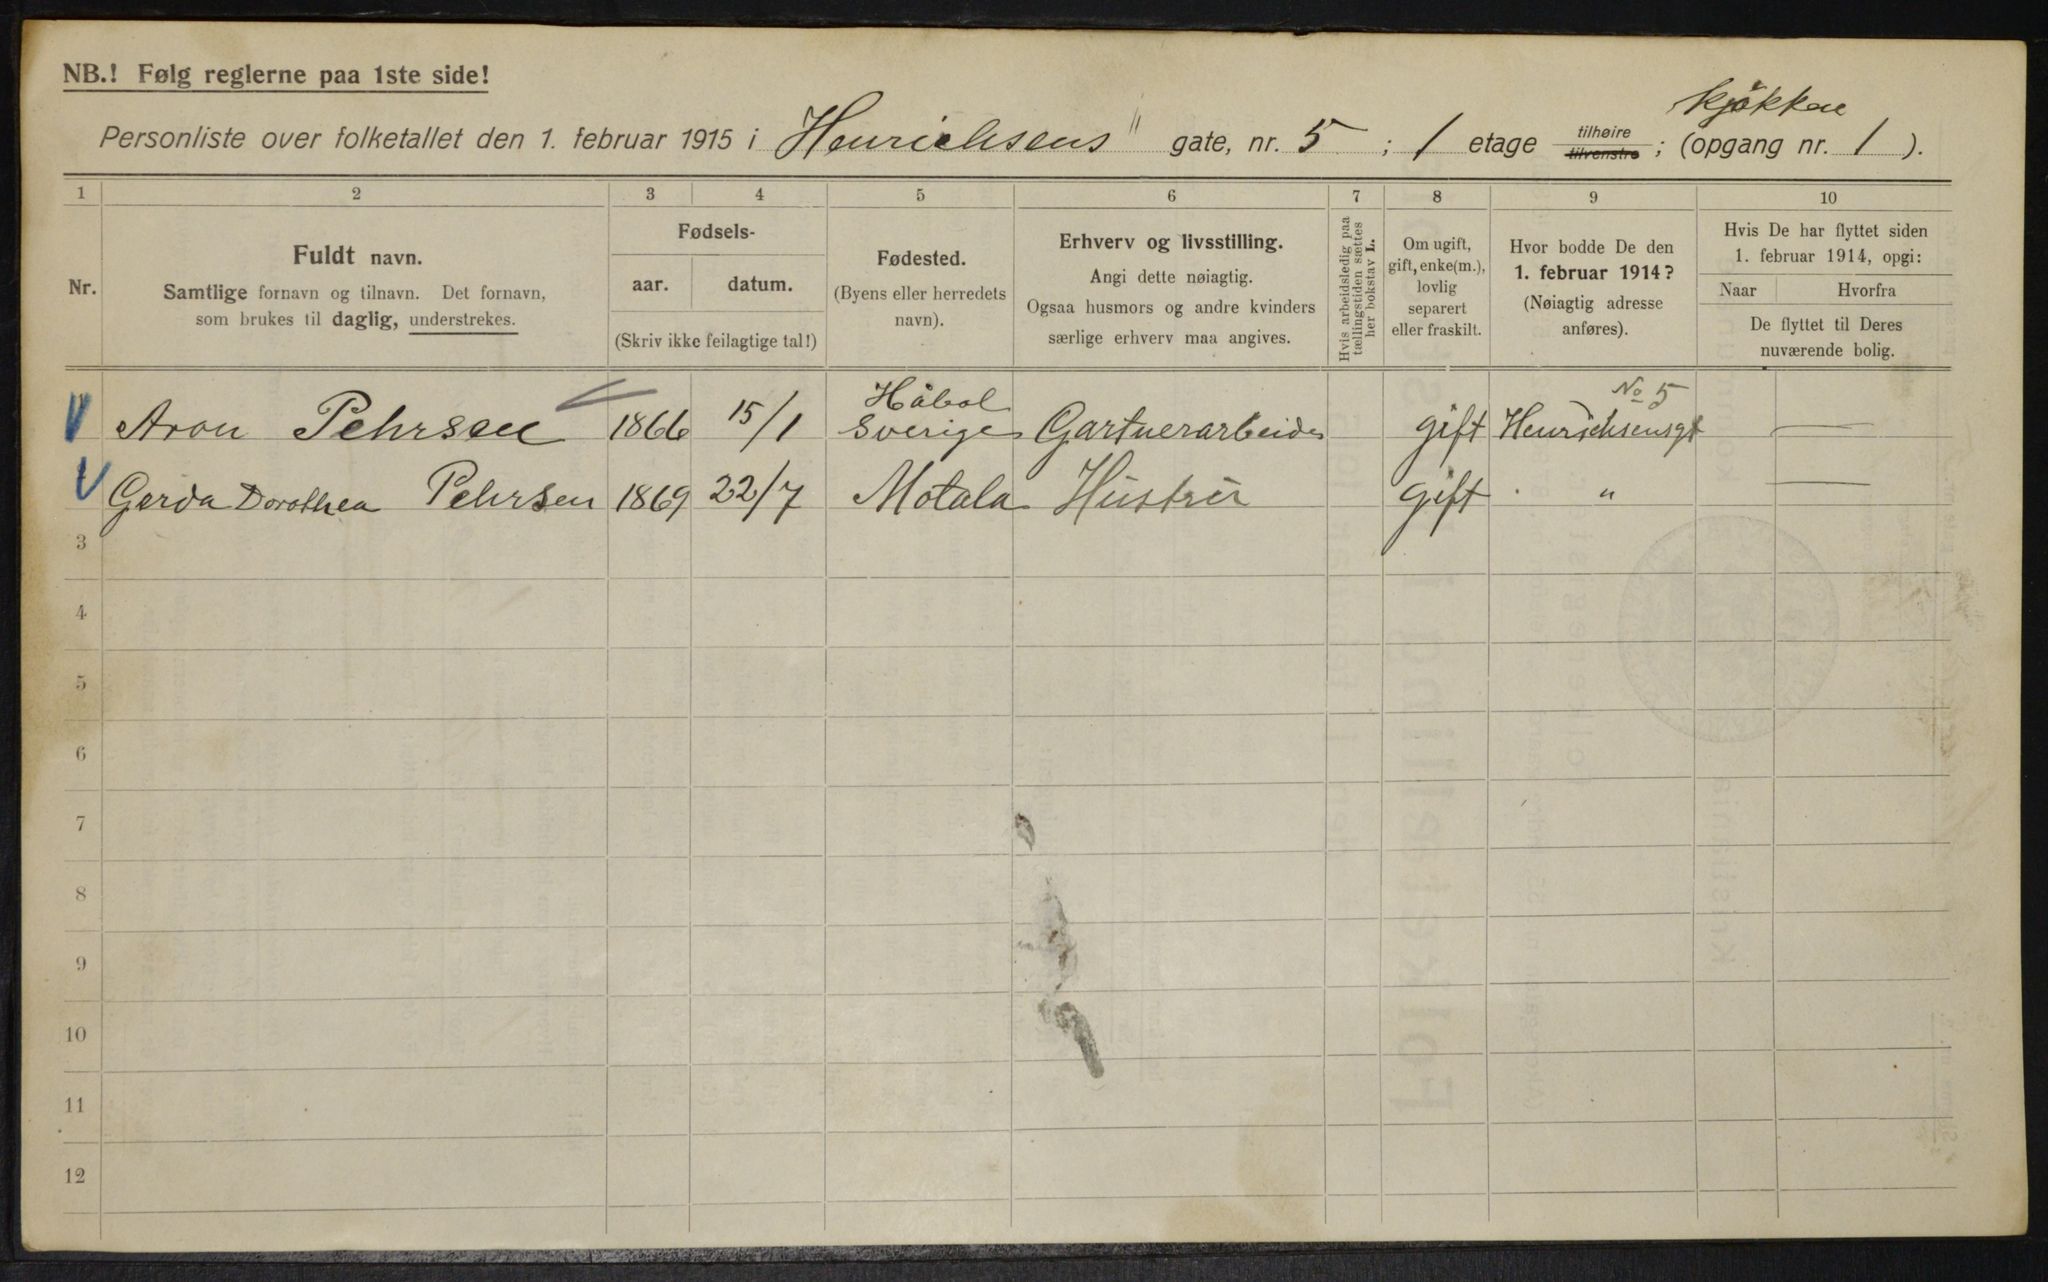 NB.! Følg reglerne paa 1ste side!
kjøkken
Personliste over folketallet den 1. februar 1915 i Henrichsens " gate, nr. 5 ; 1 etage tilhøire tilvenstre ; (opgang nr. 1 ).
1 2 3 4 5 6 7 8 9 10
Nr.
Fuldt navn.
Samtlige fornavn og tilnavn. Det fornavn,
som brukes til daglig, understrekes.
Fødsels-
aar. datum.
(Skriv ikke feilagtige tal!)
Fødested.
(Byens eller herredets
navn).
Erhverv og livsstilling.
Angi dette nøiagtig.
Ogsaa husmors og andre kvinders
særlige erhverv maa angives.
Hvis arbeidsledig paa
tællingstiden sættes
her bokstav L.
Om ugift,
gift, enke(m.),
lovlig
separert
eller fraskilt.
Hvor bodde De den
1. februar 1914?
(Nøiagtig adresse
anføres).
Hvis De har flyttet siden
1. februar 1914, opgi:
Naar Hvorfra
De flyttet til Deres
nuværende bolig.
Håbol No 5
Aron Pehrsen 1866 15/1 Sverige Gartnerarbeider gift Henrichsensgt —
Gerda Dorothea Pehrsen 1869 22/7 Motala Hustru gift " —
3
4
5
6
7
8
9
10
11
12